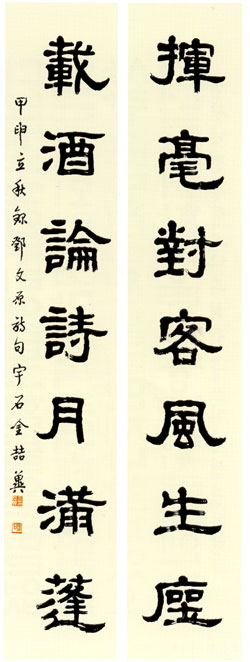 揮毫對客風生座
載酒論詩月滿蓬
甲申立秋錄鄧文原詩句宇石金喆